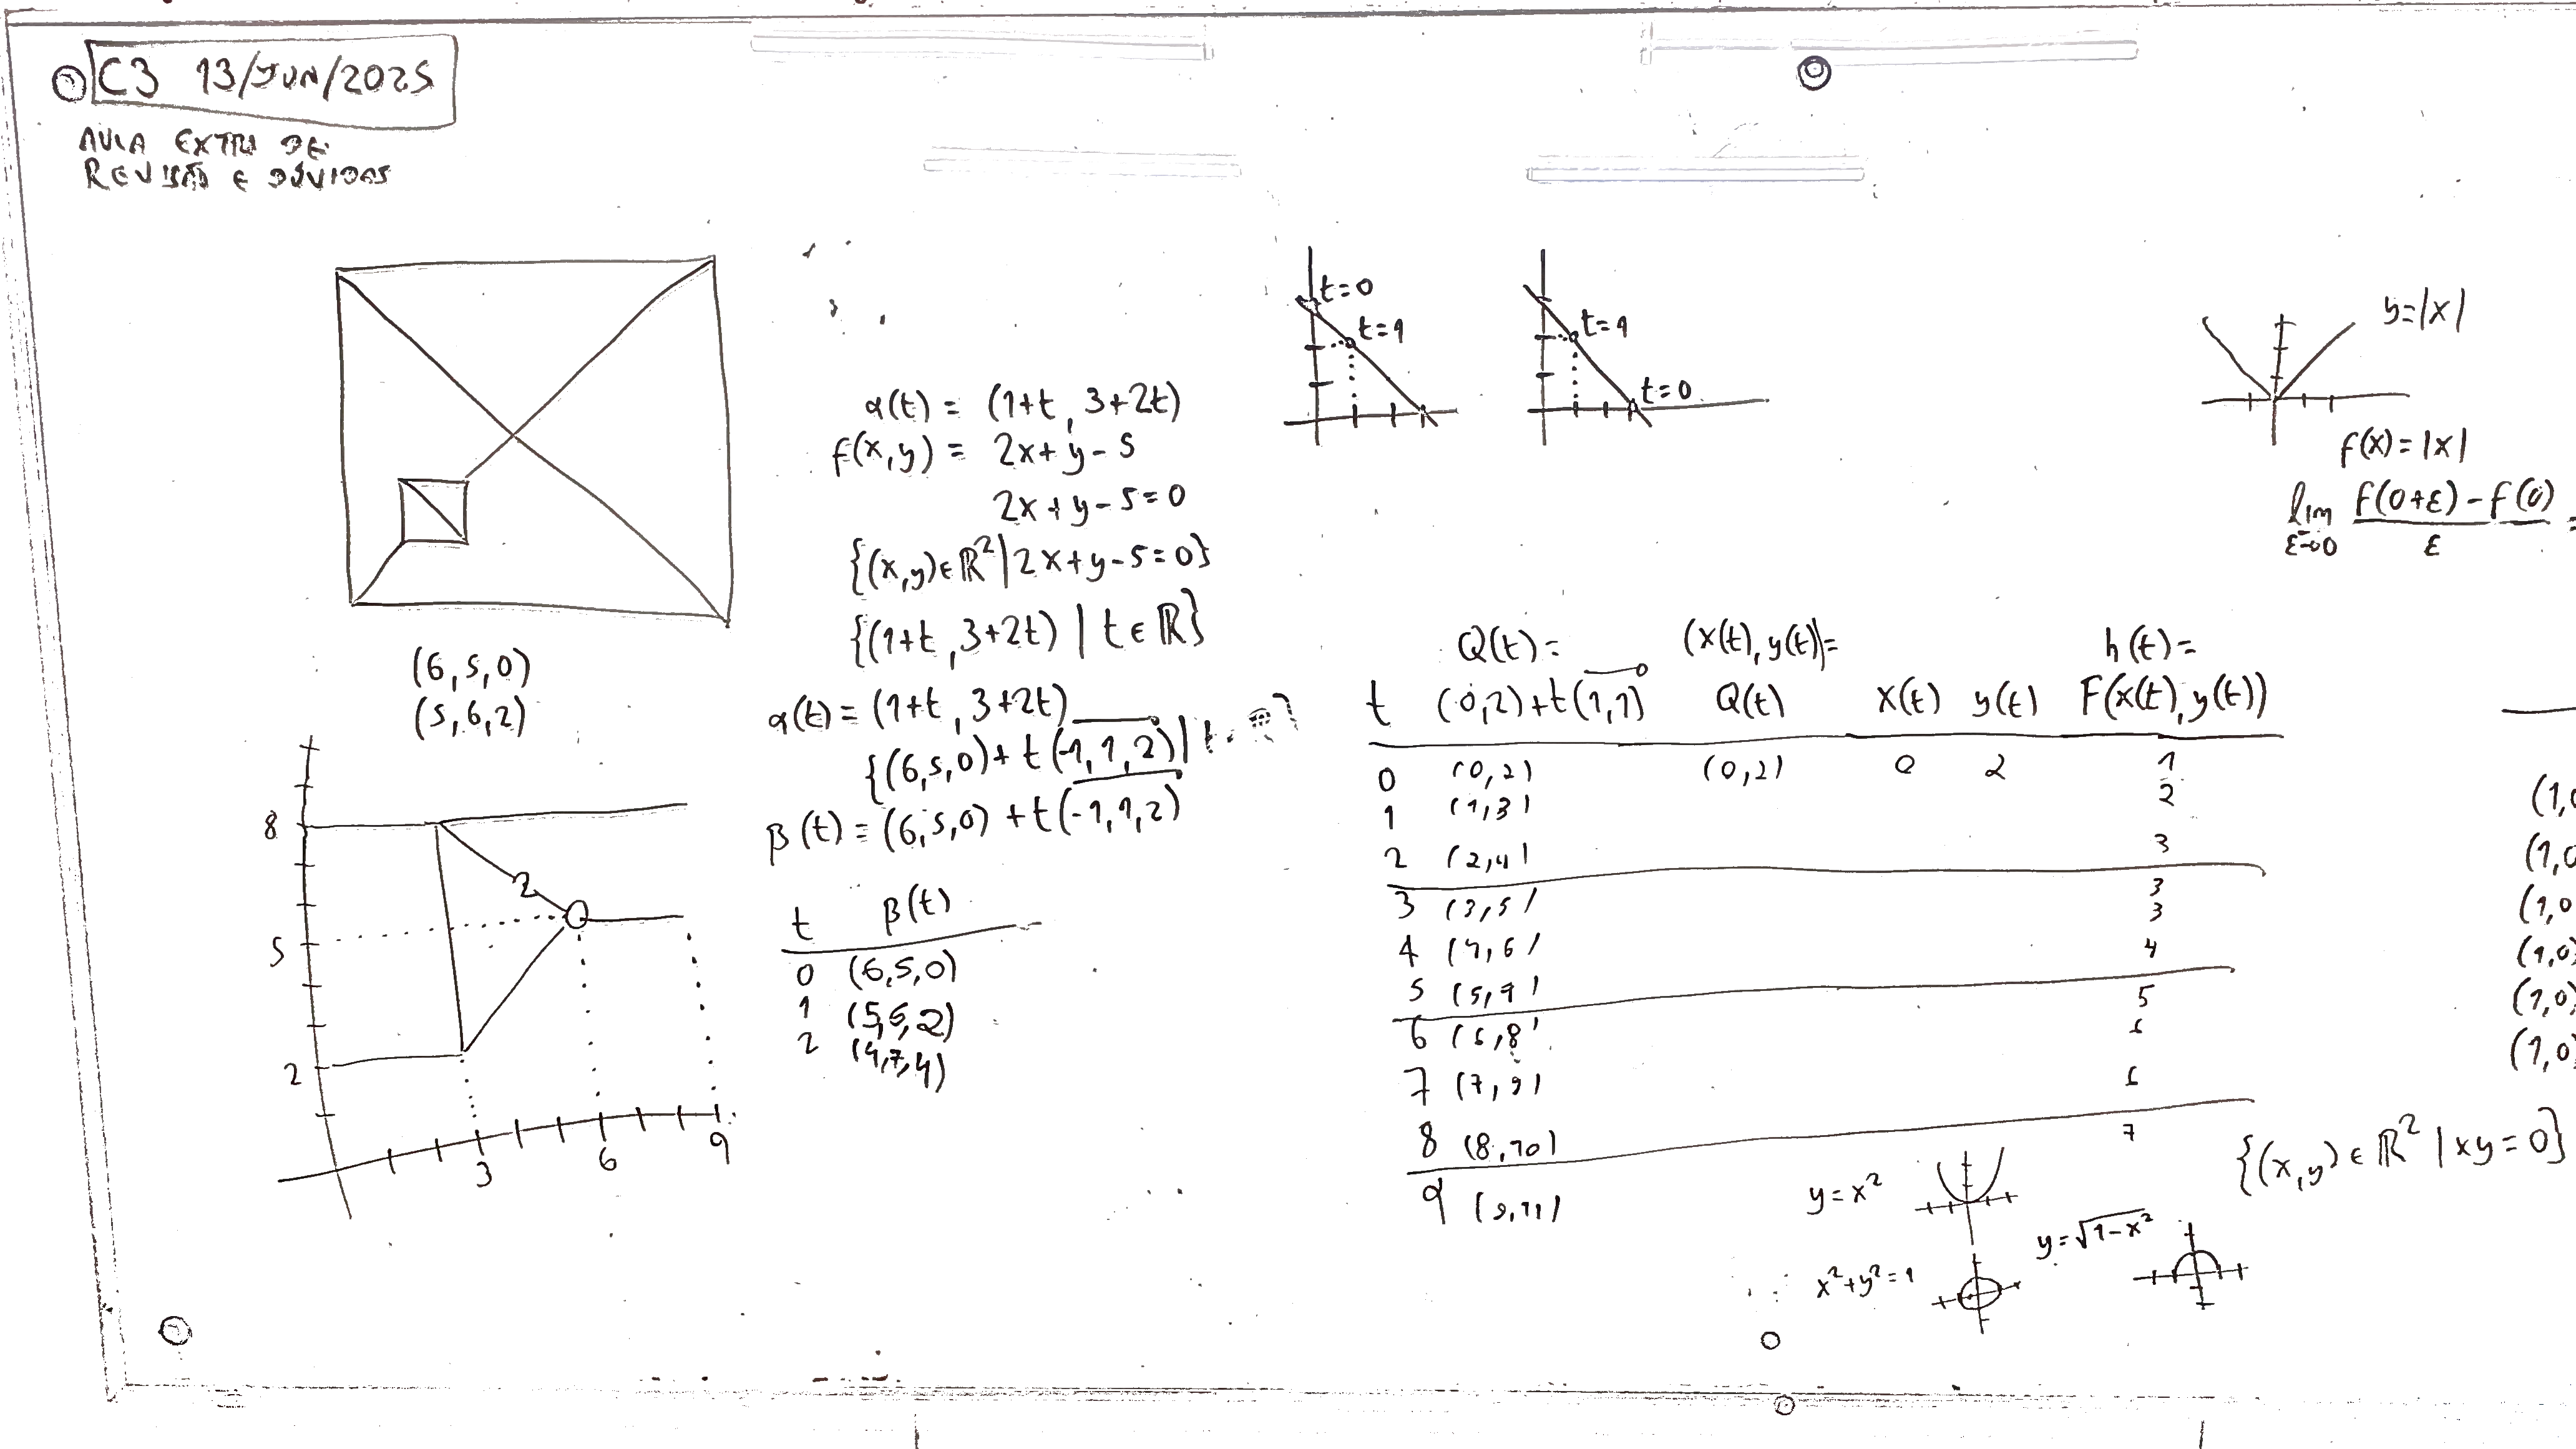 C3 13/JUN/2025
AULA EXTRA DE
REVISÃO E DÚVIDAS
(6,5,0)
(5,6,2)
8
5
2
2
3
6
9
α(t) = (1+t, 3+2t)
F(x,y) = 2x+y-5
2x+y-5=0
{(x,y)∈ℝ²|2x+y-5=0}
{(1+t, 3+2t) | t∈ℝ}
α(t) = (1+t, 3+2t)
{(6,5,0)+t(-1,1,2)|
β(t) = (6,5,0)+t(-1,1,2)
t β(t)
0 (6,5,0)
1 (5,6,2)
2 (4,7,4)
t=0
t=1
t=1
t=0
y=|x|
f(x)=|x|
lim ε→0 (f(0+ε)-f(0))/ε =
Q(t)= (x(t),y(t))= h(t)=
t (0,2)+t(1,1) Q(t) x(t) y(t) F(x(t),y(t))
0 (0,2) (0,2) 0 2 1
1 (1,3) 2
2 (2,4) 3
3 (3,5) 3
3
4 (4,6) 4
5 (5,7) 5
6 (6,8) 6
7 (7,9) 6
8 (8,10) 7
9 (9,11)
y=x²
x²+y²=1
y=√1-x²
(1,0
(1,0
(1,0
(1,0)
(1,0)
(1,0)
{(x,y)∈ℝ²|xy=0}